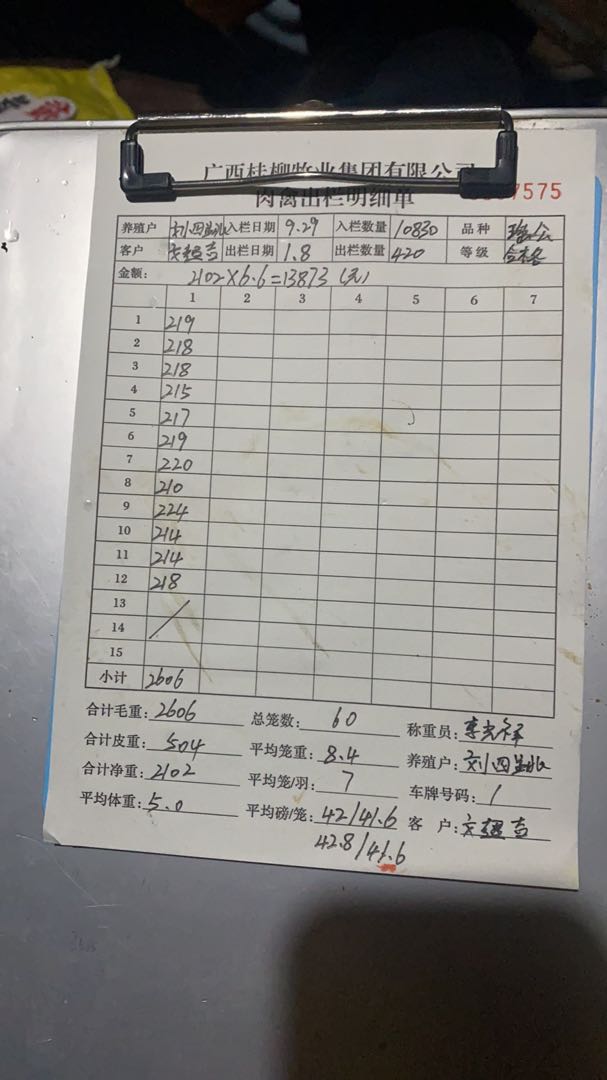 广西桂柳牧业集团有限公司
肉禽出栏明细单 7575
养殖户 刘四 入栏日期 9.29 入栏数量 10830 品种
客户 出栏日期 1.8 出栏数量 420 等级 合格
金额: 2102×6.6=13873(元)
1 2 3 4 5 6 7
1 219
2 218
3 218
4 215
5 217
6 219
7 220
8 210
9 224
10 214
11 214
12 218
13
14
15
小计 2606
合计毛重: 2606 总笼数: 60 称重员: 李
合计皮重: 504 平均笼重: 8.4 养殖户: 刘四
合计净重: 2102 平均笼/羽: 7 车牌号码: 1
平均体重: 5.0 平均磅/笼: 42/41.6 客 户:
42.8/41.6